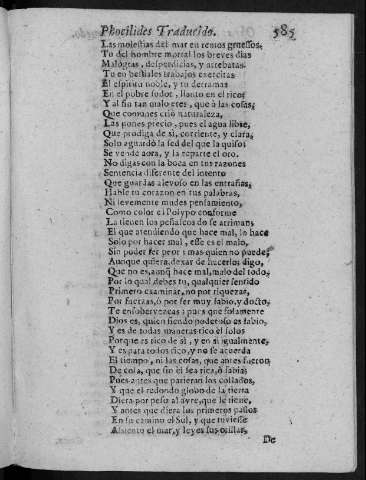 Phocilides Traducido. 585
Las molestias del mar en remos gruessos,
Tu del hombre mortal los breves dias
Malogras, desperdicias, y arrebatas.
Tu en bestiales trabajos exercitas
El espiritu noble, y tu derramas
En el pobre sudor, llanto en el rico:
Y al fin tan malo eres, que à las cosas,
Que comunes criò naturaleza,
Las pones precio, pues el agua libre,
Que prodiga de sì, corriente, y clara,
Solo aguardò la sed del que la quiso:
Se vende aora, y la reparte el oro.
No digas con la boca en tus razones
Sentencia diferente del intento
Que guardas alevoso en las entrañas,
Hable tu corazon en tus palabras,
Ni levemente mudes pensamiento,
Como color el Polypo conforme
La tienen los peñascos do se arriman;
El que atendiendo que hace mal, lo hace
Solo por hacer mal, esse es el malo,
Sin poder ser peor: mas quien no puede,
Aunque quiera, dexar de hacerlo: digo,
Que no es, aunq̃ hace mal, malo del todo,
Por lo qual debes tu, qualquier sentido
Primero examinar, no por riquezas,
Por fuerzas, ò por ser muy sabio, y docto,
Te ensobervezcas: pues que solamente
Dios es, quien siendo poderoso es sabio,
Y es de todas maneras rico èl solo:
Porque es rico de sì, y en sì igualmente,
Y es para todos rico, y no se acuerda
El tiempo, ni las cosas, que antes fueron,
De cosa, que sin èl sea rica, ò sabia;
Pues antes que parieran los collados,
Y que el redondo globo de la tierra
Diera por peso al ayre, que le tiene,
Y antes que diera los primeros passos
En su camino el Sol, y que tuviesse
Assiento el mar, y leyes sus orillas,
De